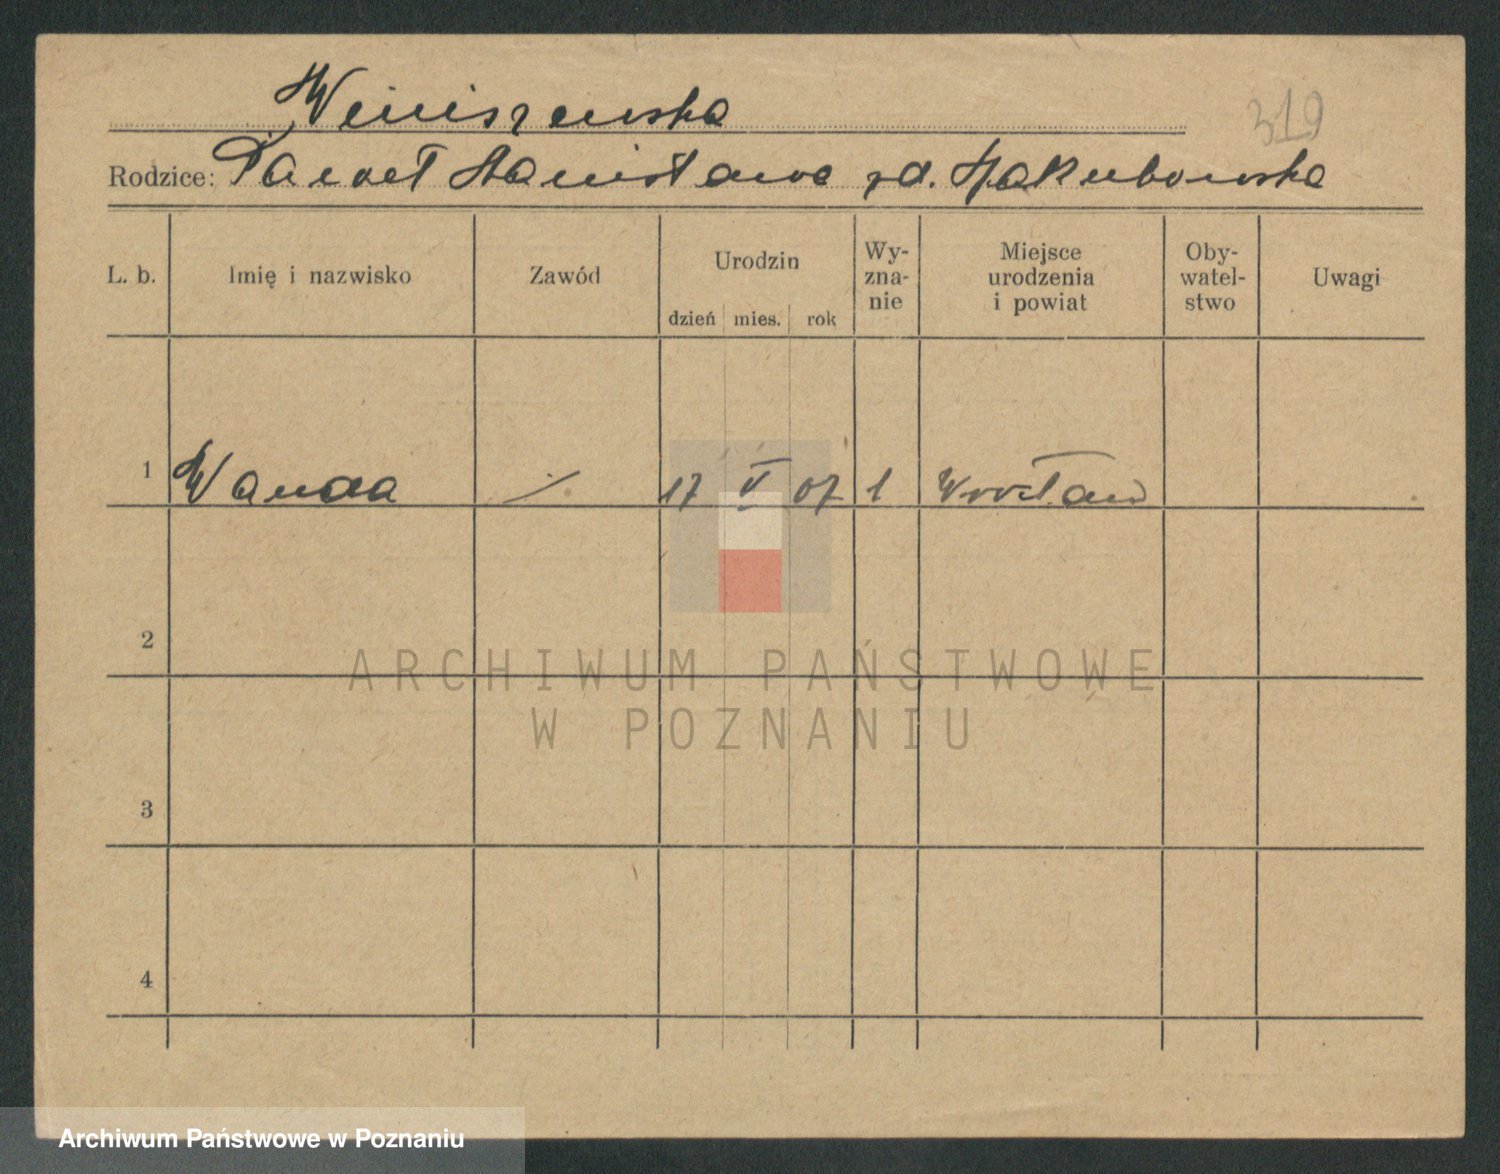 Weiniszewska
319
Rodzice: Paweł Stanisława zd. Jakubowska
L. b. Imię i nazwisko Zawód Urodzin dzień mies. rok Wy-zna-nie Miejsce urodzenia i powiat Oby-watel-stwo Uwagi
1 Wanda 17 V 07 1 Wrocław
2
ARCHIWUM PAŃSTWOWE
W POZNANIU
3
4
Archiwum Państwowe w Poznaniu